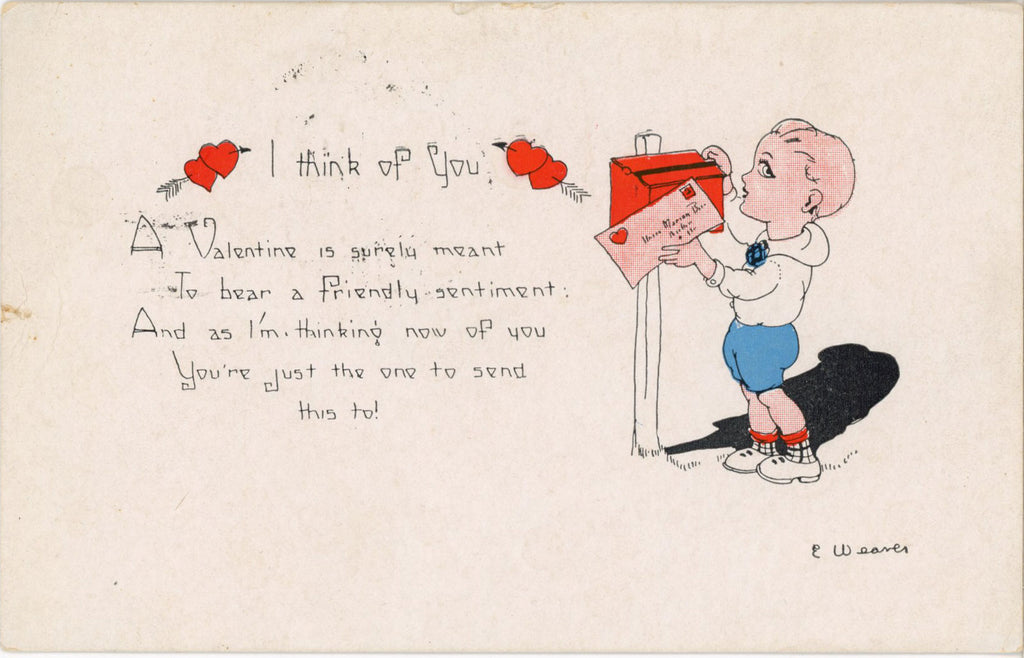 I think of You
A Valentine is surely meant
To bear a friendly sentiment:
And as I'm thinking now of you
You're just the one to send
this to!
Miss Marian
E Weaver